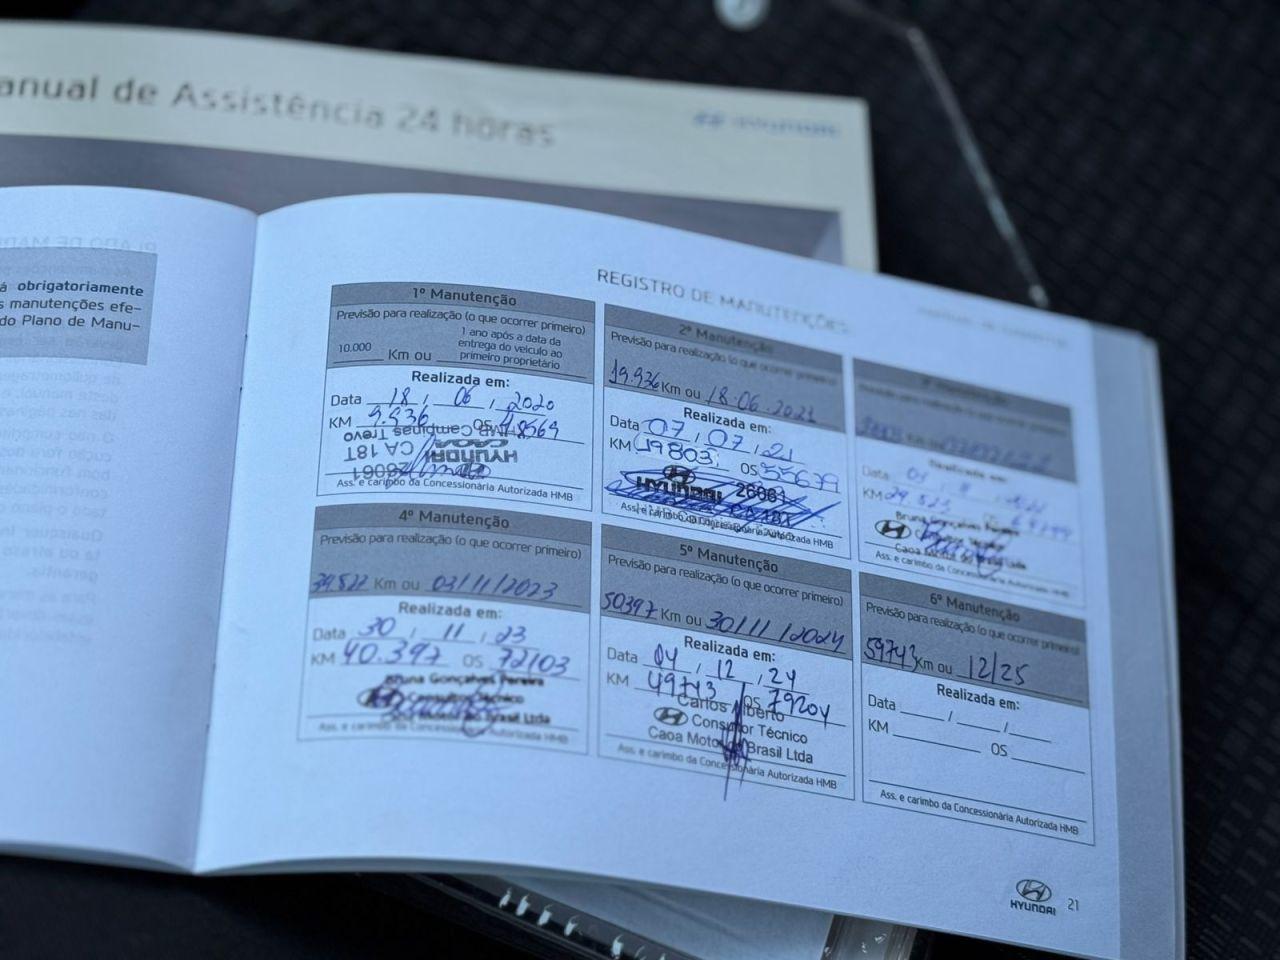 anual de Assistência 24 horas
HYUNDAI
á obrigatoriamente
s manutenções efe-
do Plano de Manu-
REGISTRO DE MANUTENÇÕES
1º Manutenção
Previsão para realização (o que ocorrer primeiro)
10.000 Km ou 1 ano após a data da
entrega do veículo ao
primeiro proprietário
Realizada em:
Data 18, 06, 2020
KM 9.936 OS
HMB Campinas Trevo
CA 18T
CAOA
HYUNDAI
Ass. e carimbo da Concessionária Autorizada HMB
2º Manutenção
Previsão para realização (o que ocorrer primeiro)
19.936 Km ou 18.06.2021
Realizada em:
Data 07, 07, 21
KM 19803 OS 55679
HYUNDAI
Ass. e carimbo da Concessionária Autorizada HMB
Realizada em:
Data
KM 29.523
Bruna Gonçalves
Caoa Motor do Brasil Ltda
Ass. e carimbo da Concessionária Autorizada HMB
4º Manutenção
Previsão para realização (o que ocorrer primeiro)
39.522 Km ou 03/11/2023
Realizada em:
Data 30, 11, 23
KM 40.397 OS 72103
Bruna Gonçalves Pereira
Consultora Técnico
Caoa Motor do Brasil Ltda
Ass. e carimbo da Concessionária Autorizada HMB
5º Manutenção
Previsão para realização (o que ocorrer primeiro)
50397 Km ou 30/11/2024
Realizada em:
Data 04, 12, 24
KM 49743 OS 79204
Carlos Alberto
Consultor Técnico
Caoa Motor do Brasil Ltda
Ass. e carimbo da Concessionária Autorizada HMB
6º Manutenção
Previsão para realização (o que ocorrer primeiro)
59743 Km ou 12/25
Realizada em:
Data ___/___/___
KM ___ OS ___
Ass. e carimbo da Concessionária Autorizada HMB
HYUNDAI 21